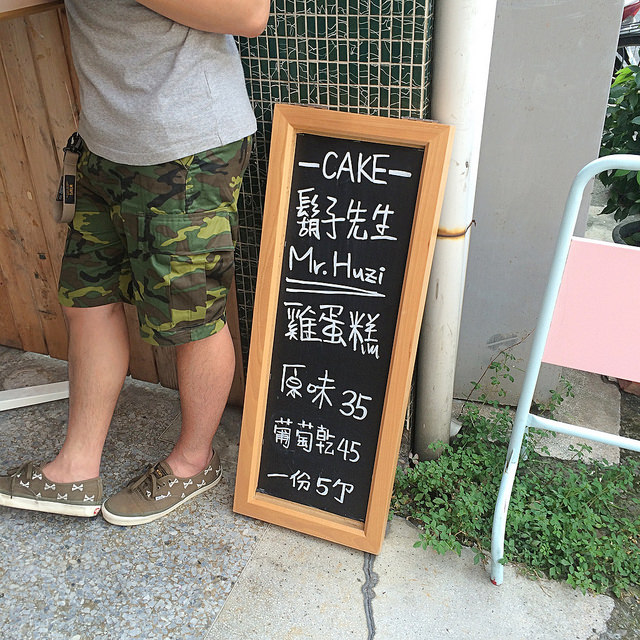 -CAKE-
鬍子先生
Mr. Huzi
雞蛋糕
原味 35
葡萄乾 45
一份 5个